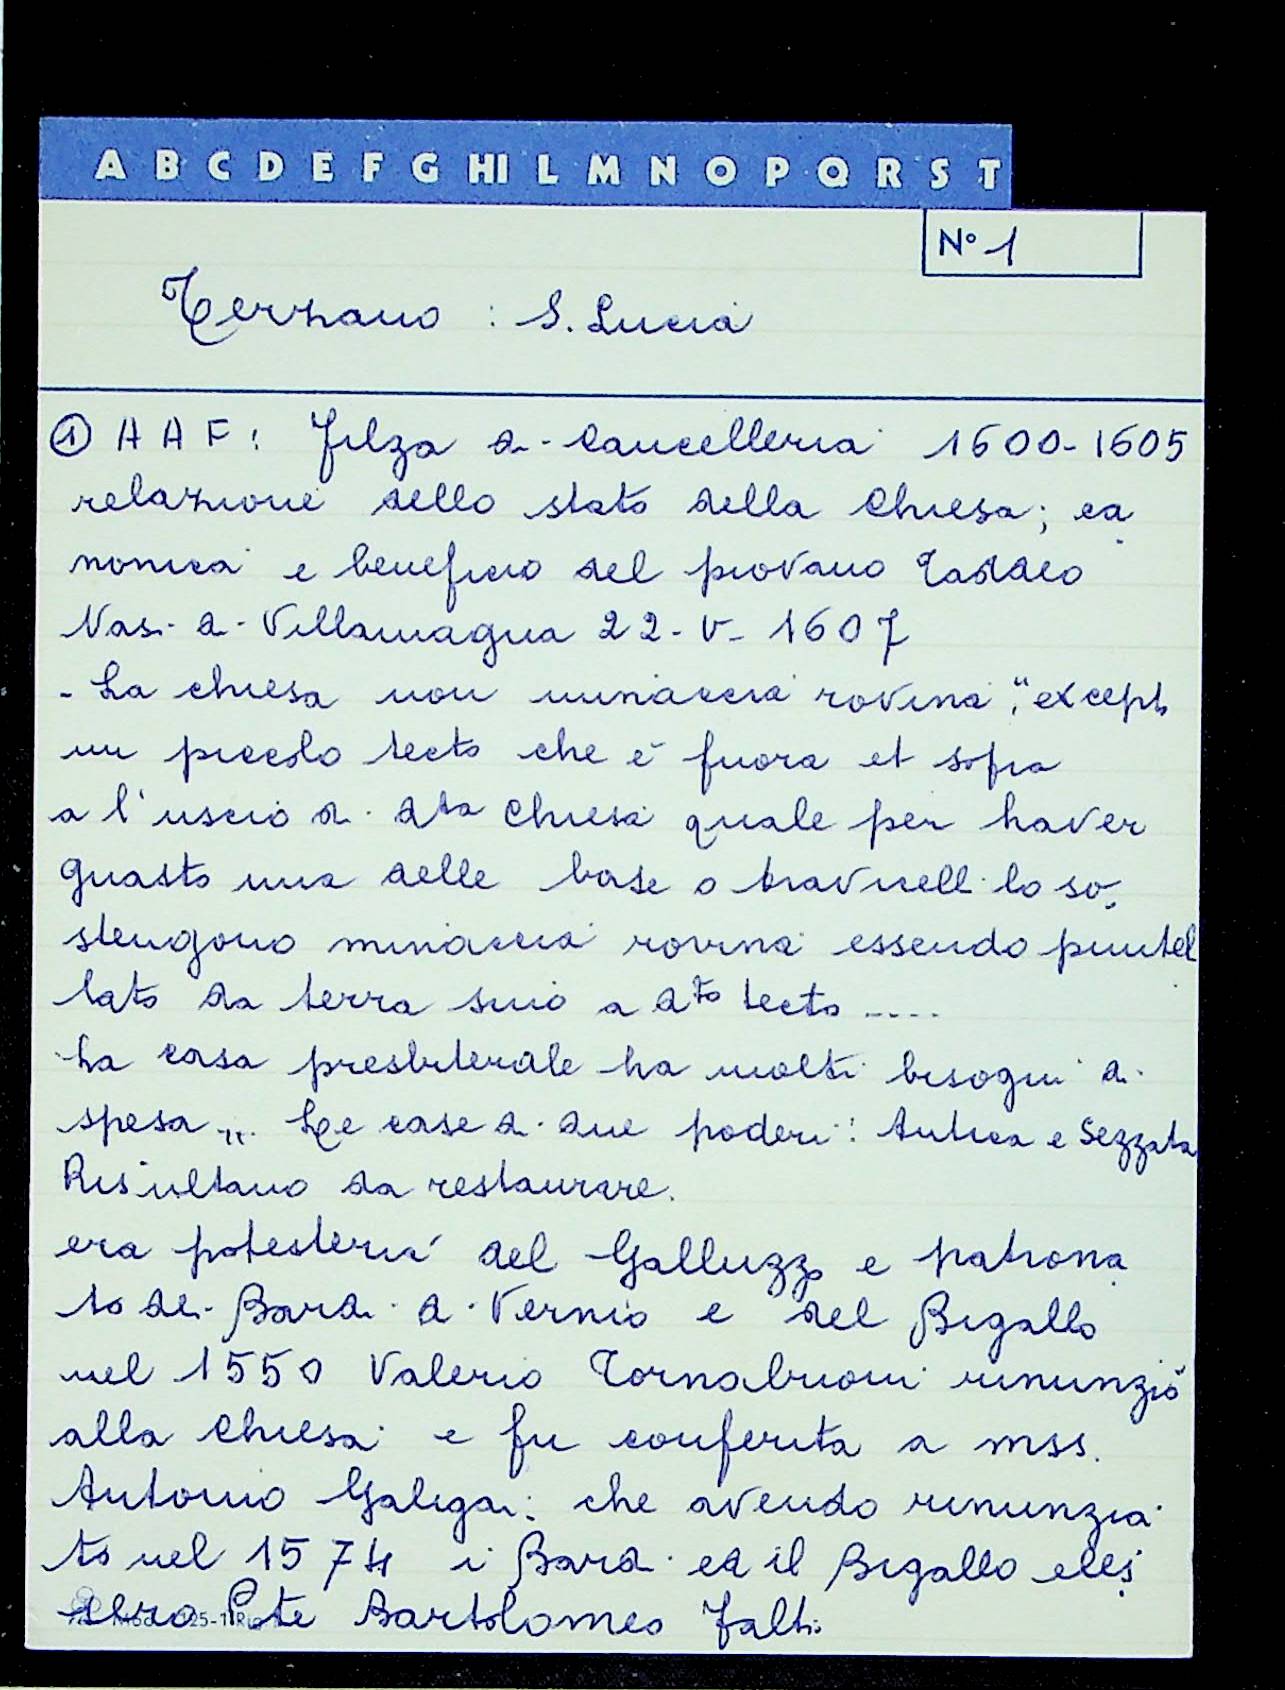 A B C D E F G HI L M N O P Q R S T
N° 1
Terzano : S. Lucia
① A A F : Filza di Cancelleria 1600-1605
relazione dello stato della Chiesa; ca
nonica e beneficio del piovano Taddeo
Nasi di Villamagna 22-V-1607
- La chiesa non minaccia rovina, "except
un piccolo tecto che è fuora et sopra
a l'uscio di dta Chiesa quale per haver
guasto una delle base o travicelli lo so
stengono minaccia rovina essendo puntel
lato da terra sino a dto tecto ....
La casa presbiterale ha molti bisogni di
spesa „. Le case di due poderi: Antica e Sezzata
Risultano da restaurare.
era potesteria del Galluzzo e patrona
to dei Bardi di Vernio e del Bigallo
nel 1550 Valerio Tornabuoni rinunziò
alla Chiesa e fu conferita a mss.
Antonio Galigai: che avendo rinunzia
to nel 1574 i Bardi ed il Bigallo eles
sero Pte Bartolomeo Falti